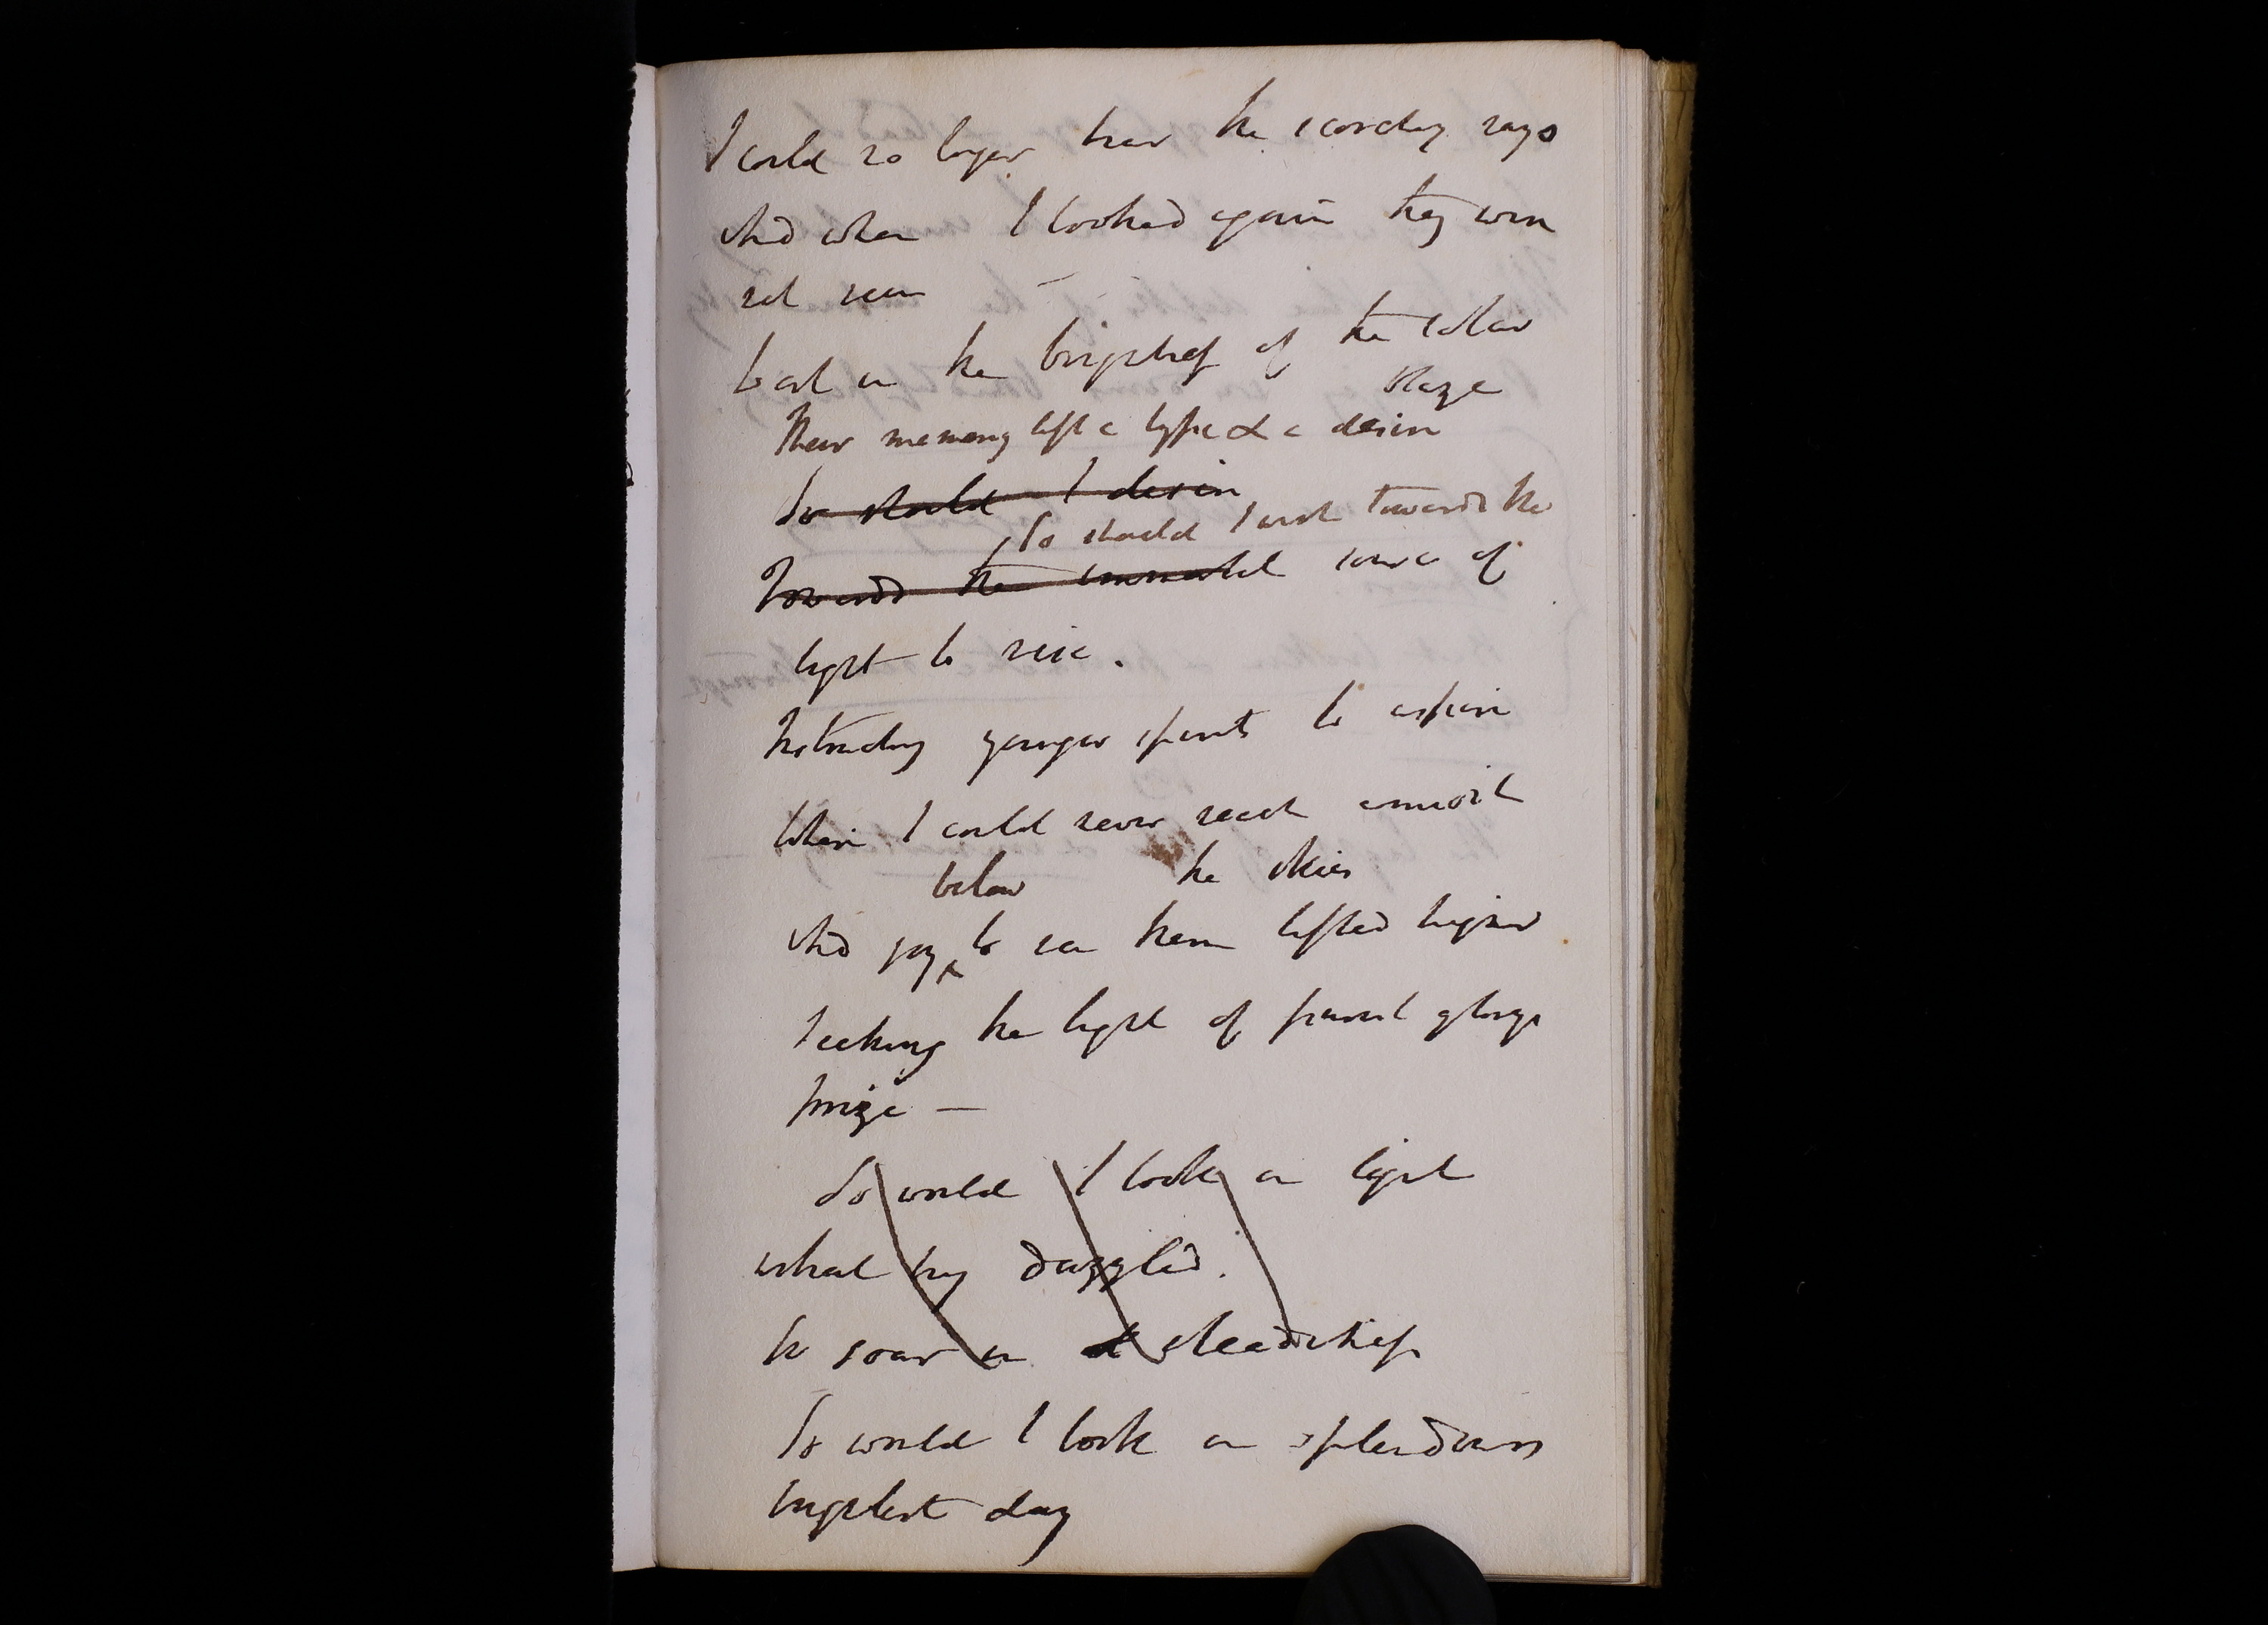 I could no longer bear the scorching rays
And when I looked again they were
not seen –
Lost in the brightness of the solar
blaze
Their memory left a type & a desire
So should I desire
So should I wish towards the
Towards the immortal source of
light to rise.
Instructing younger spirits to aspire
Where I could never reach amidst
below the skies
And joy to see them lifted higher
Seeking the light of purest glorys
prize –
So would I look on light
what they dazzled.
to soar in steadiness
So would I look on splendours
brightest day